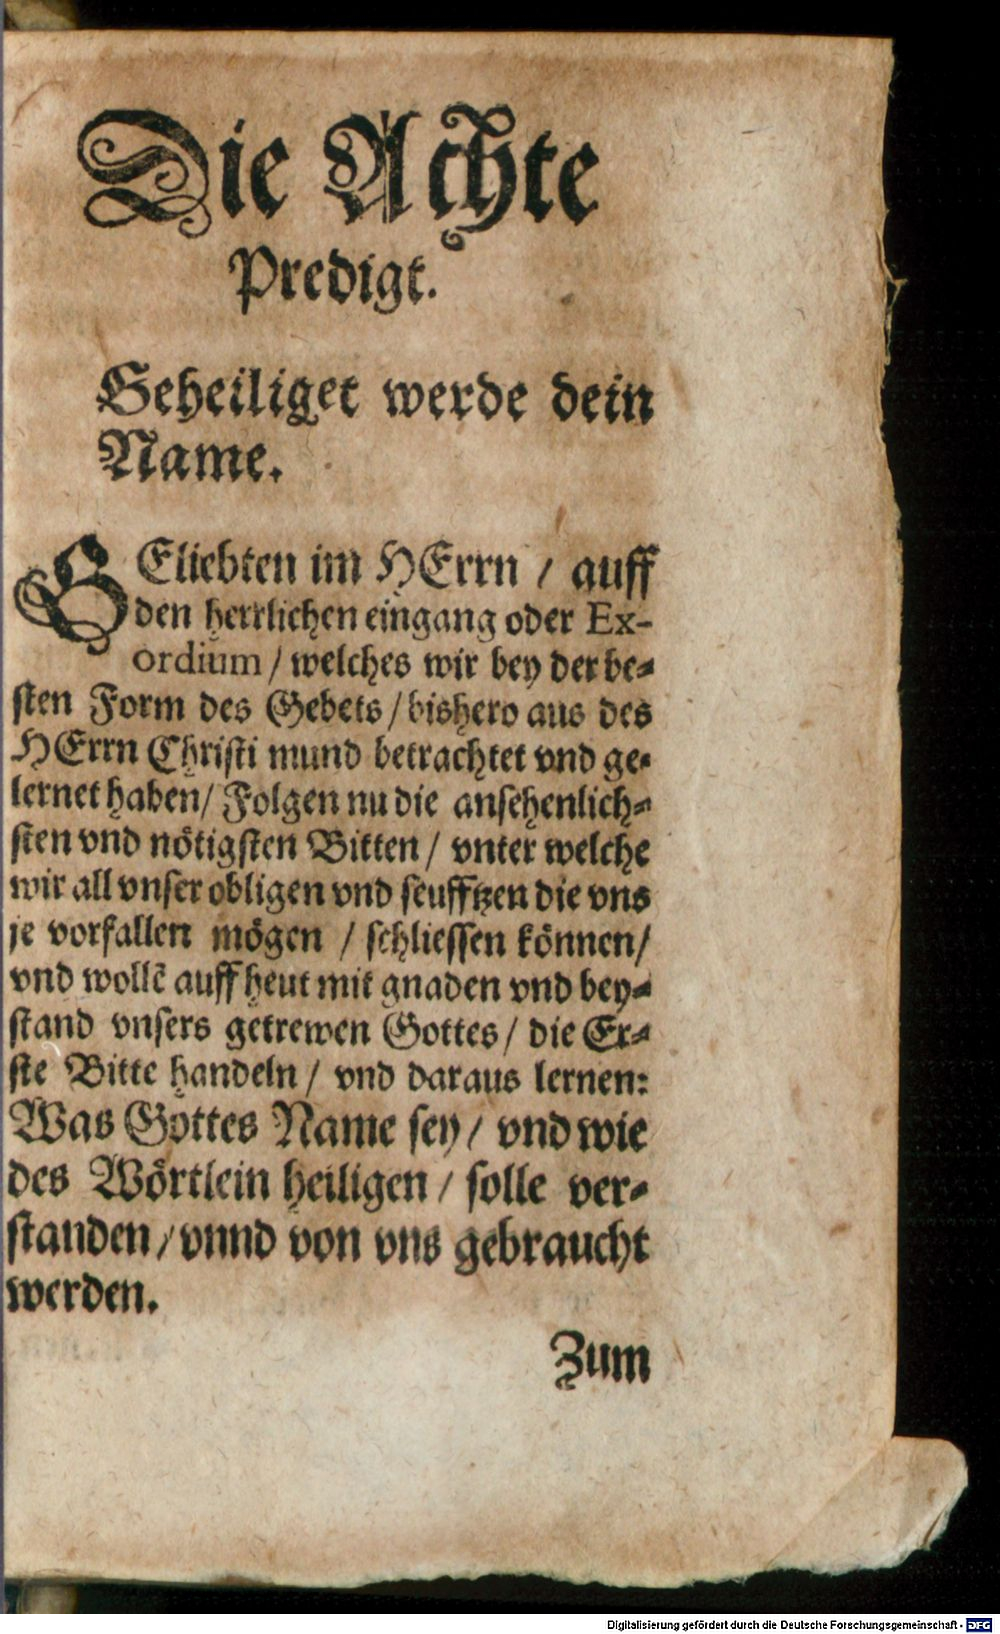 Die Achte
Predigt.
Geheiliget werde dein
Name.
GEliebten im HErrn / auff
den herrlichen eingang oder Ex-
ordium / welches wir bey der be-
sten Form des Gebets / bishero aus des
HErrn Christi mund betrachtet vnd ge-
lernet haben / Folgen nu die ansehenlich-
sten vnd nötigsten Bitten / vnter welche
wir all vnser obligen vnd seufftzen die vns
je vorfallen mögen / schliessen können /
vnd wollē auff heut mit gnaden vnd bey-
stand vnsers getrewen Gottes / die Er-
ste Bitte handeln / vnd daraus lernen:
Was Gottes Name sey / vnd wie
des Wörtlein heiligen / solle ver-
standen / vnnd von vns gebraucht
werden.
Zum
Digitalisierung gefördert durch die Deutsche Forschungsgemeinschaft - DFG